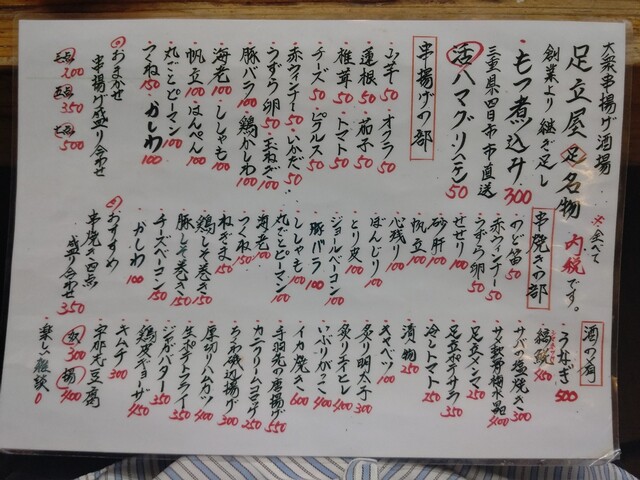 大衆串揚げ酒場
足立屋 足名物
※全べて内税です。
創業より継ぎ足し
・もつ煮込み 300
三重県四日市市直送
活ハマグリ(一ケ) 50
串揚げの部
・山芋 50
・オクラ 50
・蓮根 50
・茄子 50
・椎茸 50
・トマト 50
・チーズ 50
・ピクルス 50
・赤ウィンナー 50
・いかだ 50
・うずら卵 50
・玉ねぎ 100
・豚バラ 100
・鶏かしわ 100
・海老 100
・ししゃも 100
・帆立 100
・はんぺん 100
・丸ごとピーマン 100
・つくね 150
・かしわ 100
おまかせ
串揚げ盛り合わせ
三点 200
五点 350
七点 500
串焼きの部
・のど笛 50
・赤ウィンナー 50
・うずら卵 50
・せせり 100
・砂肝 100
・帆立 100
・心残り 100
・ぼんじり 100
・とり皮 100
・ショールベーコン 100
・豚バラ 100
・ししゃも 100
・丸ごとピーマン 100
・海老 100
・つくね 150
・ねぎま 150
・鶏しそ巻き 150
・豚しそ巻き 150
・チーズベーコン 150
・かしわ 100
おすすめ
串焼き四点
盛り合わせ 350
酒の肴
・うなぎ 500
・縞鯵 450
・サバの塩焼き 300
・サメ軟骨梅水晶 400
・足立メンマ 250
・足立ポテサラ 350
・冷しトマト 250
・漬物 250
・キャベツ 100
・炙り明太子 300
・炙りエイヒレ 400
・いぶりがっこ 400
・イカ焼き 600
・手羽先の唐揚げ 550
・カニクリームコロッケ 250
・ちくわ磯辺揚げ 300
・厚切りハムカツ 400
・生ポテトフライ 350
・ジャガバター 350
・鶏皮ギョーザ 450
・キムチ 300
・宇那志豆腐
奴 300
揚 400
・楽しい雑談 0